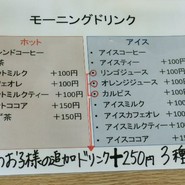 モーニングドリンク
ホット
ンドコーヒー
茶
トミルク +100円
カフェオレ +100円
ミルクティー +100円
トココア +150円
ず茶 +150円
アイス
・アイスコーヒー
・アイスティー
・リンゴジュース +100円
・オレンジジュース +100円
・カルピス +100円
・アイスミルク +100円
・アイスカフェオレ +100円
・アイスミルクティー +100円
・アイスココア +150円
のお子様の追加ドリンク+250円 3種